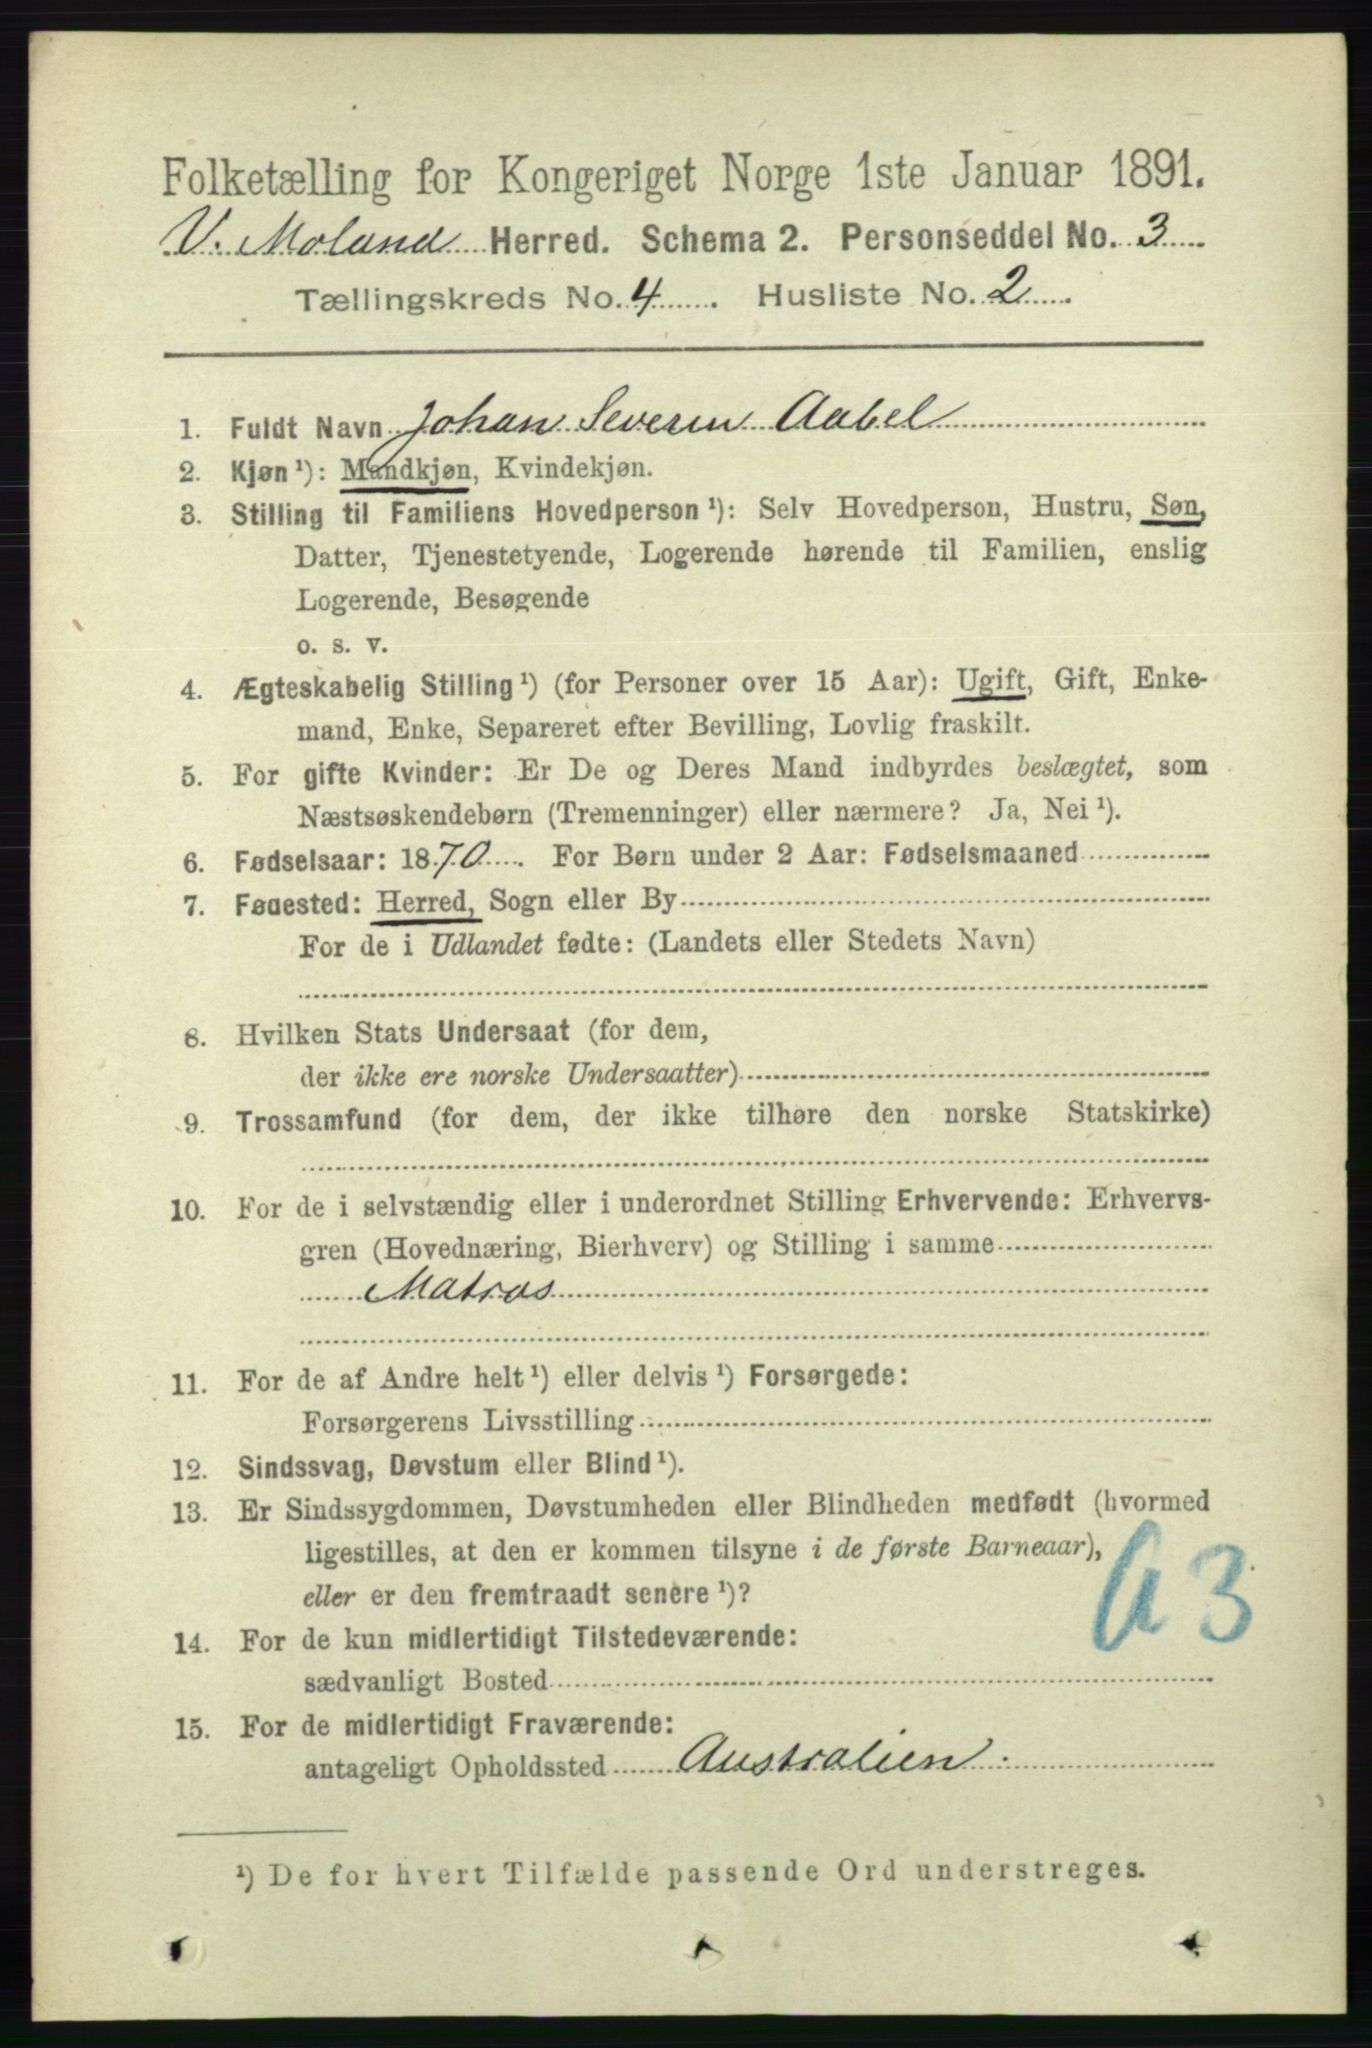 Folketælling for Kongeriget Norge 1ste Januar 1891.
V. Moland Herred. Schema 2. Personseddel No. 3
Tællingskreds No. 4 Husliste No. 2
1. Fuldt Navn Johan Severin Aabel
2. Kjøn ¹): Mandkjøn, Kvindekjøn.
3. Stilling til Familiens Hovedperson ¹): Selv Hovedperson, Hustru, Søn,
Datter, Tjenestetyende, Logerende hørende til Familien, enslig
Logerende, Besøgende
o. s. v.
4. Ægteskabelig Stilling ¹) (for Personer over 15 Aar): Ugift, Gift, Enke-
mand, Enke, Separeret efter Bevilling, Lovlig fraskilt.
5. For gifte Kvinder: Er De og Deres Mand indbyrdes beslægtet, som
Næstsøskendebørn (Tremenninger) eller nærmere? Ja, Nei ¹).
6. Fødselsaar: 1870. For Børn under 2 Aar: Fødselsmaaned
7. Fødested: Herred, Sogn eller By
For de i Udlandet fødte: (Landets eller Stedets Navn)
8. Hvilken Stats Undersaat (for dem,
der ikke ere norske Undersaatter)
9. Trossamfund (for dem, der ikke tilhøre den norske Statskirke)
10. For de i selvstændig eller i underordnet Stilling Erhvervende: Erhvervs-
gren (Hovednæring, Bierhverv) og Stilling i samme
Matros
11. For de af Andre helt ¹) eller delvis ¹) Forsørgede:
Forsørgerens Livsstilling
12. Sindssvag, Døvstum eller Blind ¹).
13. Er Sindssygdommen, Døvstumheden eller Blindheden medfødt (hvormed
ligestilles, at den er kommen tilsyne i de første Barneaar),
eller er den fremtraadt senere ¹)?
a 3
14. For de kun midlertidigt Tilstedeværende:
sædvanligt Bosted
15. For de midlertidigt Fraværende:
antageligt Opholdssted Australien
¹) De for hvert Tilfælde passende Ord understreges.